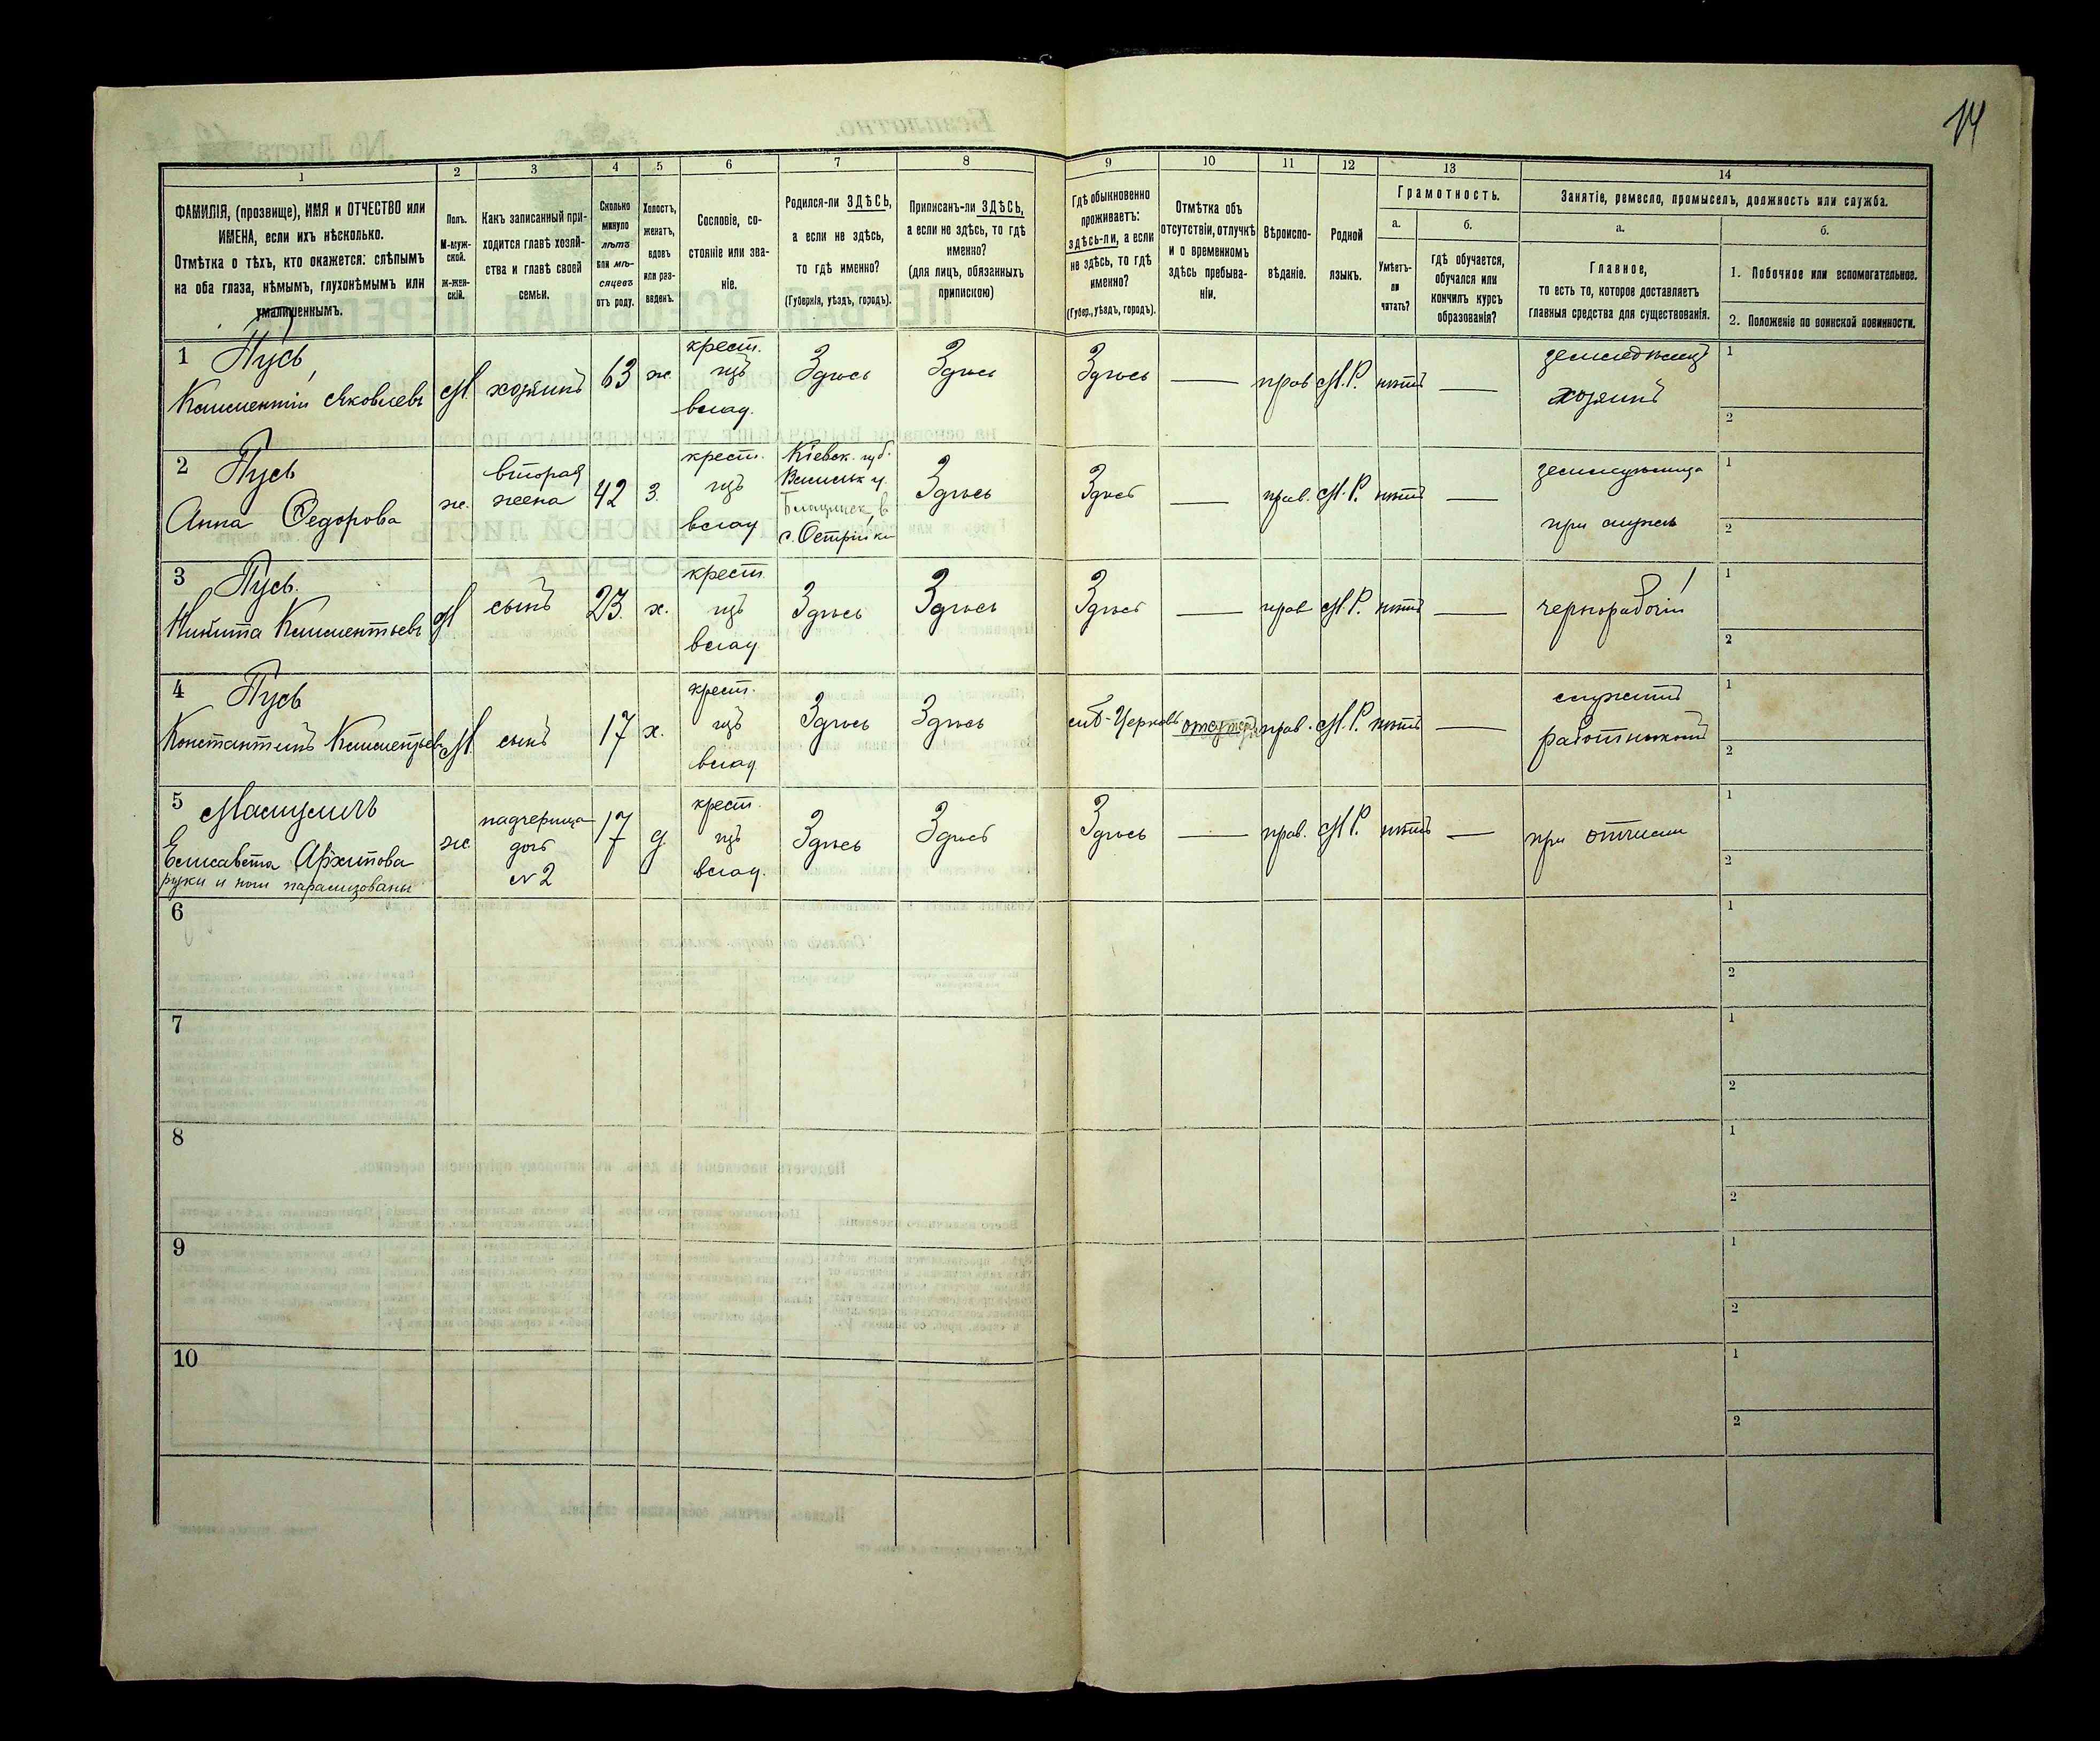 14
1
2
3
4
5
6
7
8
9
10
11
12
13
14
ФАМИЛІЯ, (прозвище), ИМЯ и ОТЧЕСТВО или
ИМЕНА, если ихъ нѣсколько.
Отмѣтка о тѣхъ, кто окажется: слѣпымъ
на оба глаза, нѣмымъ, глухонѣмымъ или
умалишеннымъ.
Полъ.
М-муж-
ской.
ж-жен-
скій.
Какъ записанный при-
ходится главѣ хозяй-
ства и главѣ своей
семьи.
Сколько
минуло
лѣтъ
или мѣ-
сяцевъ
отъ роду.
Холостъ,
женатъ,
вдовъ
или раз-
веденъ.
Сословіе, со-
стояніе или зва-
ніе.
Родился-ли ЗДѢСЬ,
а если не здѣсь,
то гдѣ именно?
(Губернія, уѣздъ, городъ).
Приписанъ-ли ЗДѢСЬ,
а если не здѣсь, то гдѣ
именно?
(для лицъ, обязанныхъ
припискою)
Гдѣ обыкновенно
проживаетъ:
здѣсь-ли, а если
не здѣсь, то гдѣ
именно?
(Губер., уѣздъ, городъ).
Отмѣтка объ
отсутствіи, отлучкѣ
и о временномъ
здѣсь пребыва-
ніи.
Вѣроиспо-
вѣданіе.
Родной
языкъ.
Грамотность.
а.
Умѣетъ-
ли
читать?
б.
гдѣ обучается,
обучался или
кончилъ курсъ
образованія?
Занятіе, ремесло, промыселъ, должность или служба.
а.
Главное,
то есть то, которое доставляетъ
главныя средства для существованія.
б.
1. Побочное или вспомогательное.
2. Положеніе по воинской повинности.
1 Пусь
Климентій Яковлевъ
М
хозяинъ
63
ж
крест.
изъ
влад.
Здѣсь
Здѣсь
Здѣсь
—
прав
М.Р.
нѣтъ
—
земледѣлецъ
хозяинъ
1
2
2 Пусь
Анна Федорова
ж.
вторая
жена
42
з.
крест.
изъ
влад
Кіевск. губ.
с. Острійки
Здѣсь
Здѣсь
—
прав.
М.Р.
нѣтъ
—
при мужѣ
1
2
3 Пусь.
Никита Климентьевъ
М
сынъ
23
х.
крест.
изъ
влад
Здѣсь
Здѣсь
Здѣсь
—
прав
М.Р.
нѣтъ
—
чернорабочій
1
2
4 Пусь
Константинъ Климентьевъ
М
сынъ
17
х.
крест.
изъ
влад
Здѣсь
Здѣсь
Церковь
прав.
М.Р.
нѣтъ
—
служитъ
работникомъ
1
2
5
Елисавета Архипова
руки и ноги парализованы
ж
падчерица
дочь
№2
17
д
крест.
изъ
влад.
Здѣсь
Здѣсь
Здѣсь
—
прав.
М.Р.
нѣтъ
—
при отчимѣ
1
2
6
1
2
7
1
2
8
1
2
9
1
2
10
1
2